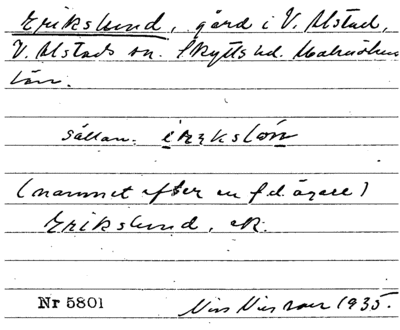 Erikslund, gård i V. Alstad,
V. Alstads sn. Skytts hd. Malmöhus
län.
sällan.
(namnet efter en f.d. ägare)
Erikslund, ek.
Nr 5801
1935.